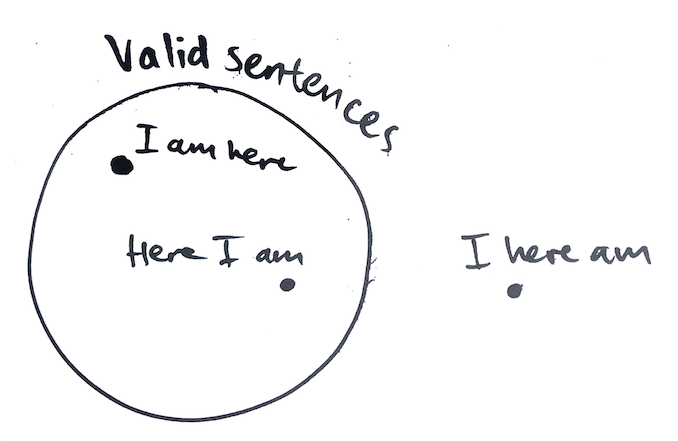 Valid sentences
I am here
Here I am
I here am